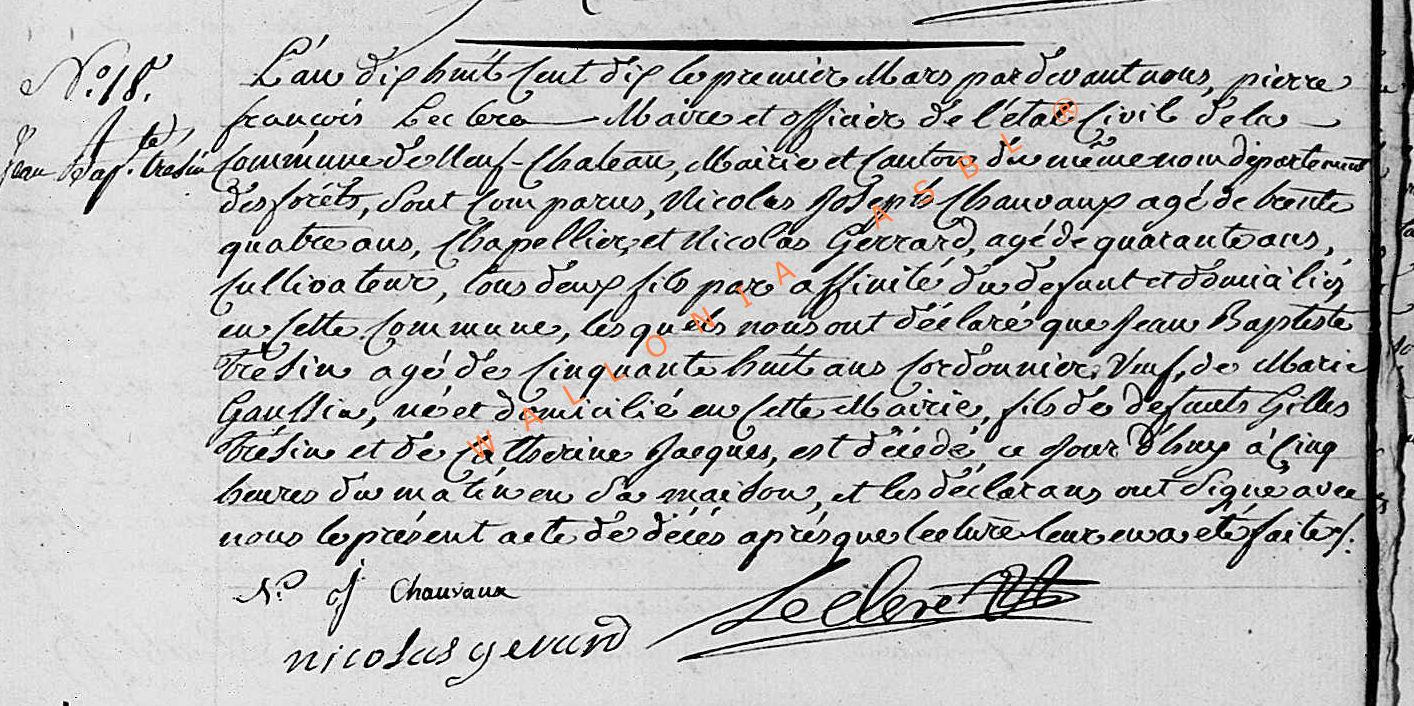 N.º 18.
L'an dix huit cent dix le premier Mars pardevant nous, pierre
françois Leclere Maire et officier de l'état Civil de la
Jean Bap.te trésin
Commune de Neuf-Chateau, Mairie et Canton du même nom département
des forêts, sont comparus, Nicolas Joseph Chauvaux agé de trente
quatre ans, Chapellier, et Nicolas Gerrard, agé de quarante ans,
Cultivateur, tous deux fils par affinité du defunt et domiciliés
en cette Commune, lesquels nous ont déclaré que Jean Baptiste
trésin agé de cinquante huit ans cordonnier, Veuf, de Marie
Gaussin, né et domicilié en cette Mairie, fils de defunts Gilles
trésin et de Catherine Jacques, est décédé ce jour d'huy à cinq
heures du matin en sa maison, et les déclarans ont signé avec
nous le présent acte de décès après que lecture leur en a été faite
N.º j Chauvaux
Leclere
nicolas gerard
WALLONIA ASBL ®